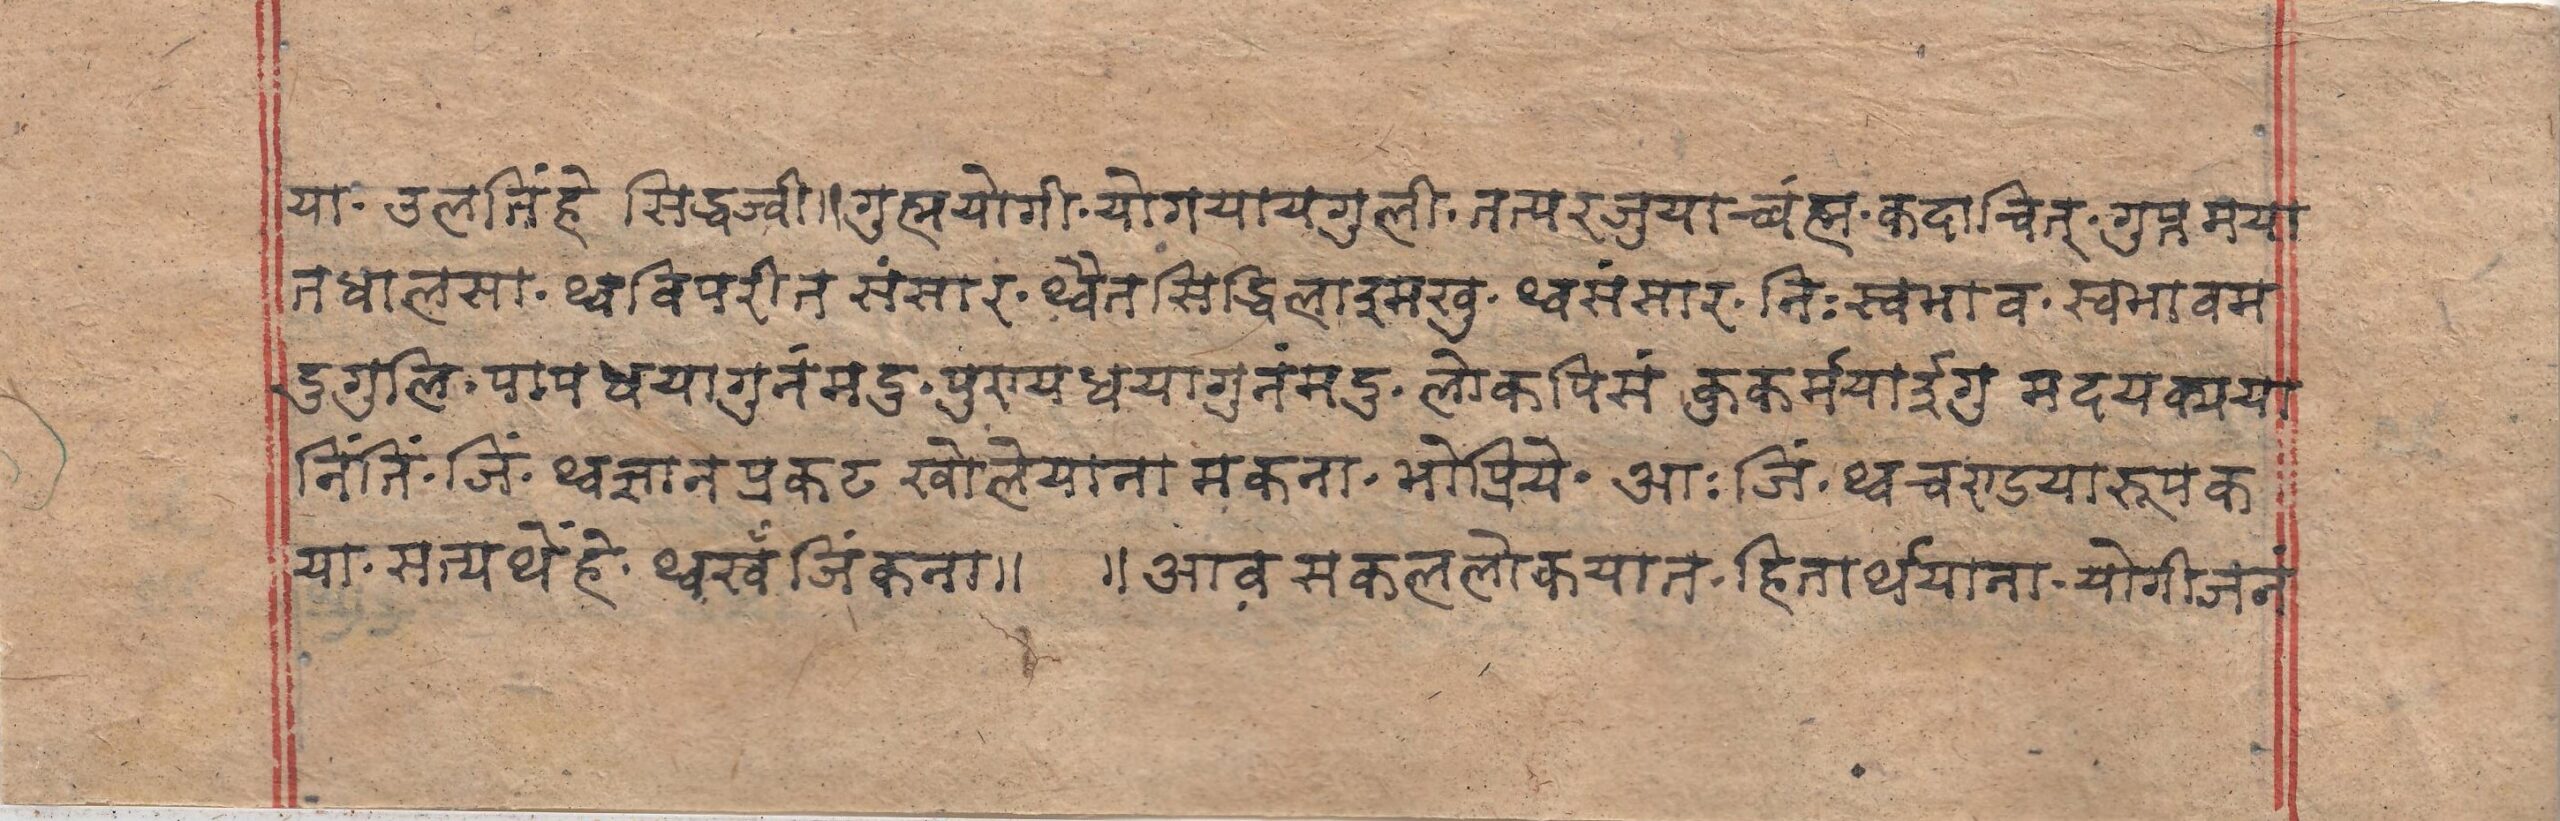 या· उलतिंहे सिद्धज्वी॥गुह्मयोगी·योगयायगुली·तत्परजुयाच्वंह्म·कदाचित्·गुप्तमया
तधालसा·थ्वविपरीत संसार·थ्वैतसिद्धिलाइमखु·थ्वसंसार·निःस्वभाव·स्वभावम
दुगुलि·पापधयागुनंमदु·पुण्यधयागुनंमदु·लोकपिसं कुकर्मयाईगु मदयक्यया
निंतिं·जिं·थ्वज्ञानप्रकट खोलेयाना मकना·भोप्रिये·आः जिं·थ्वचण्डयारूपक
या·सत्यथेंहे·थ्वखँ जिंकना॥ ॥आव सकललोकयात·हितार्थयाना·योगीजनं